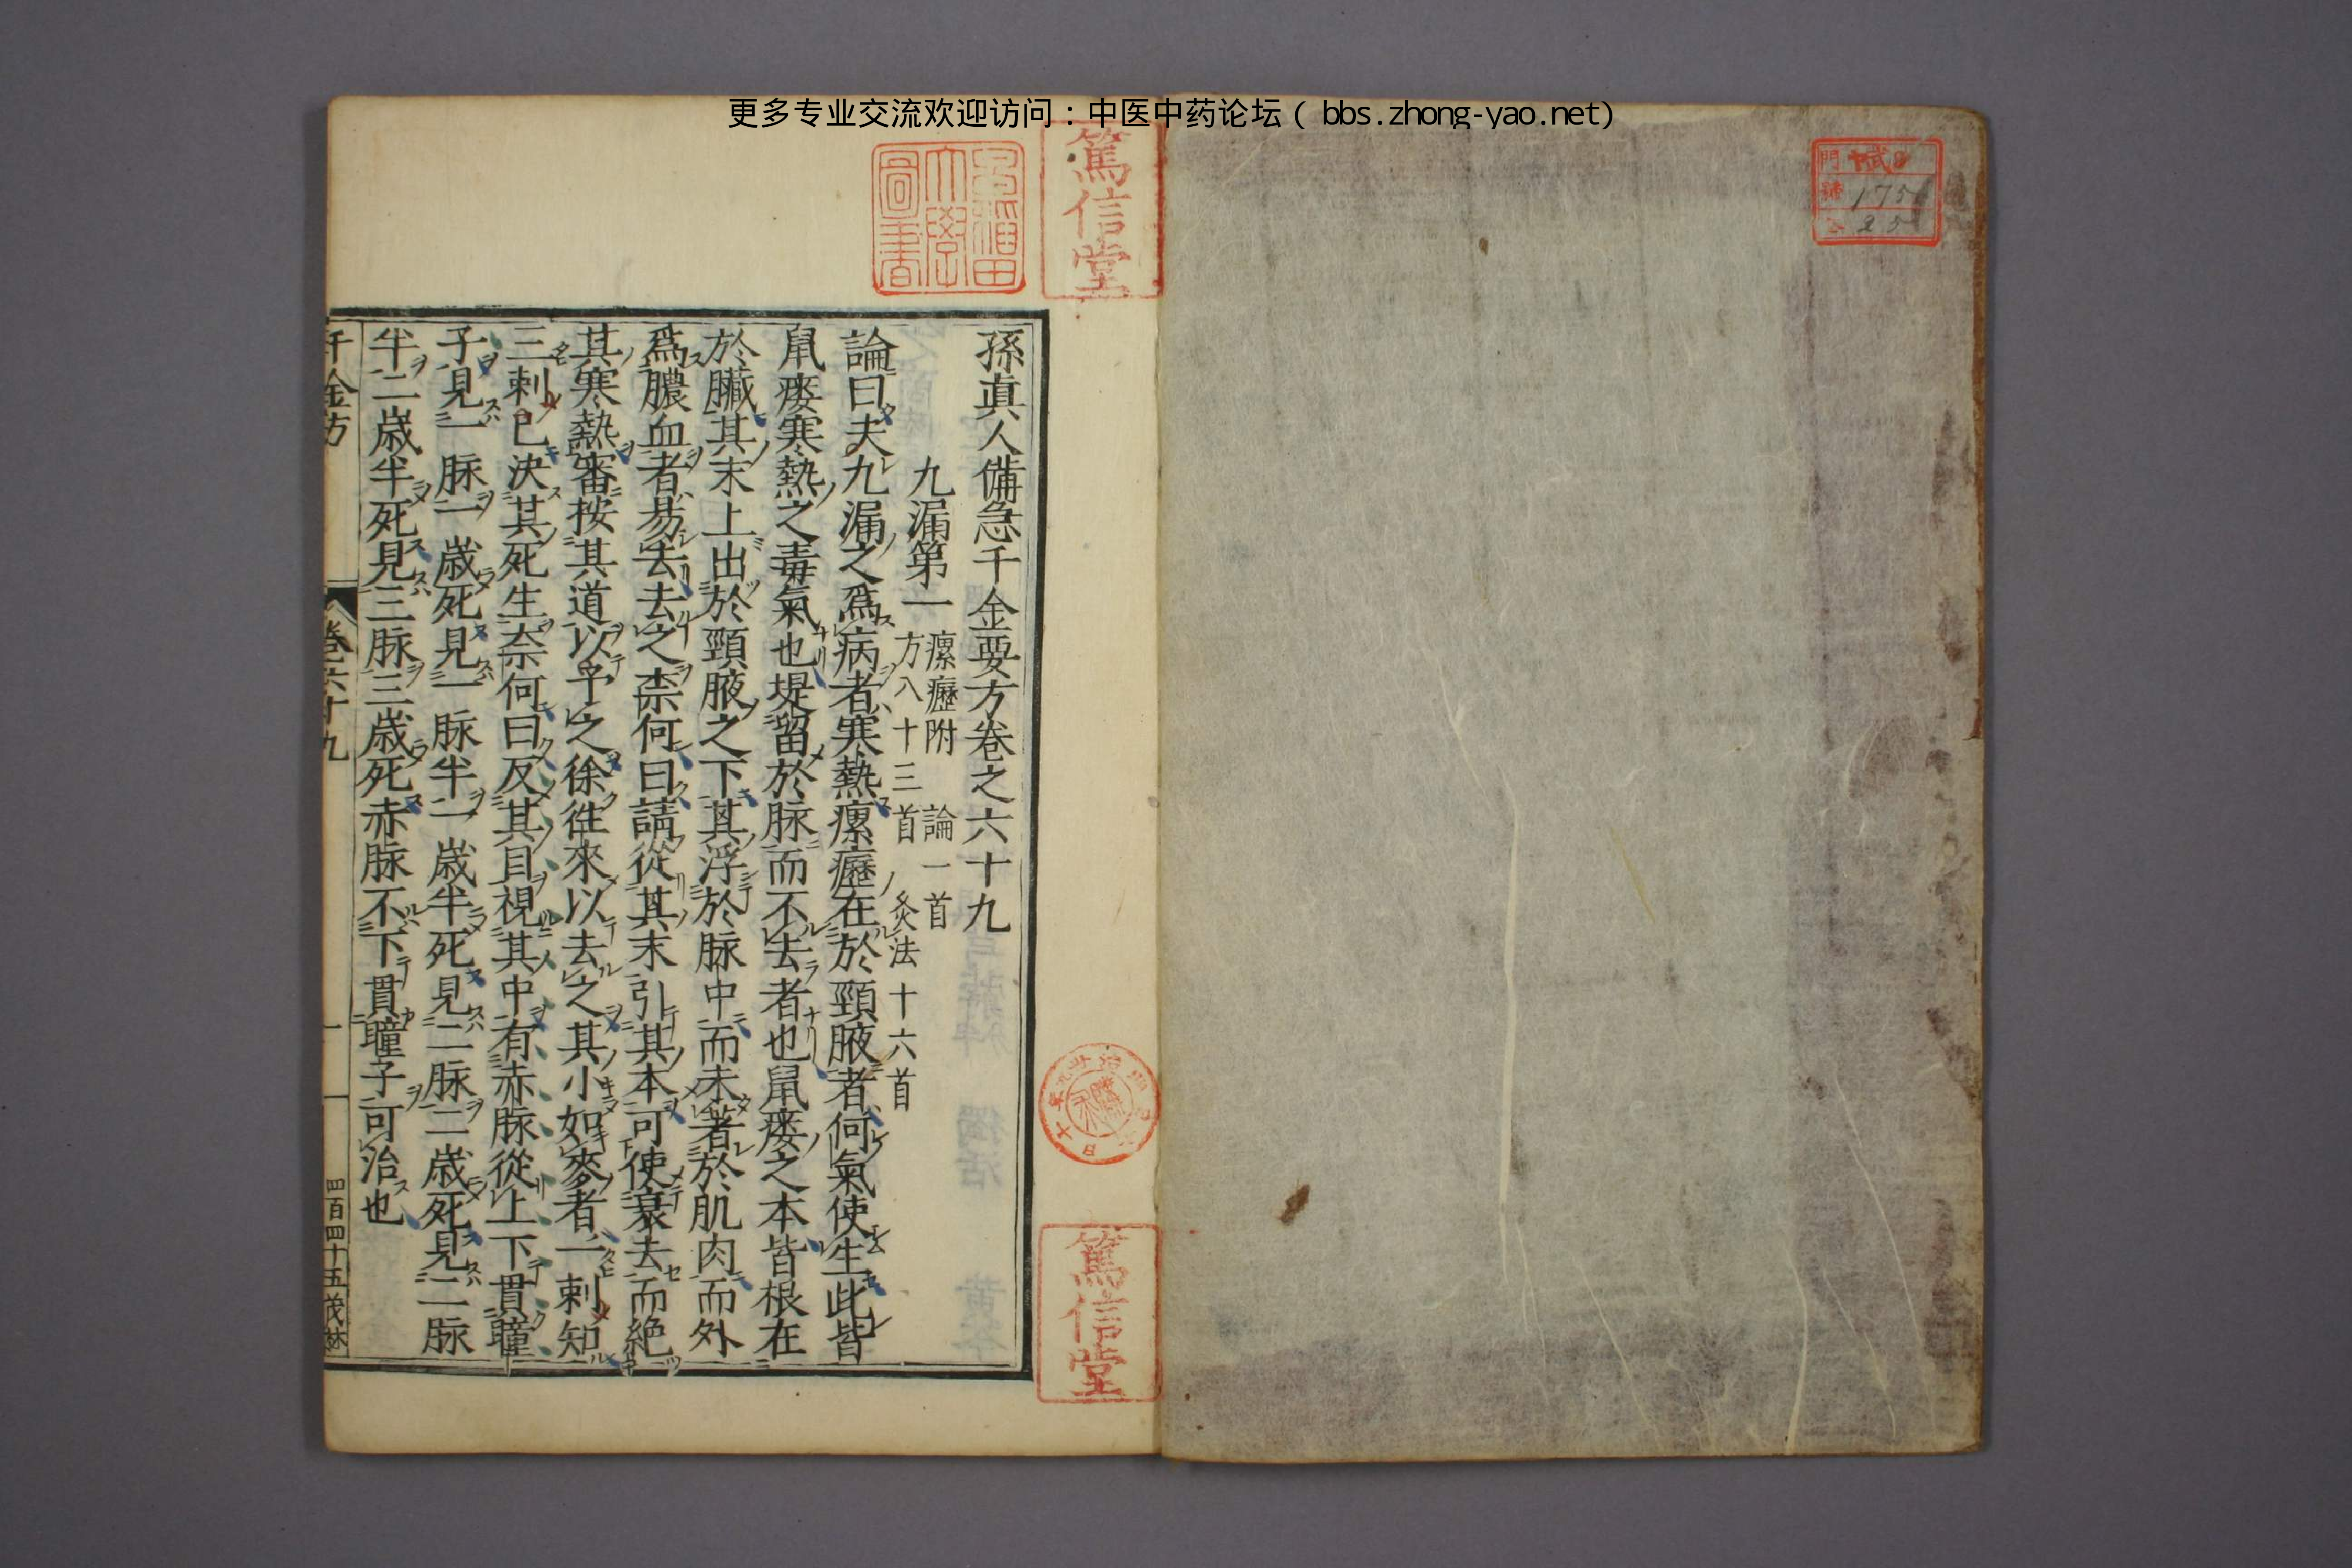 更多专业交流欢迎访问:中医中药论坛( bbs.zhong-yao.net)
門
號 175
25
篤信堂
早稲田大學圖書
孫眞人備急千金要方卷之六十九
九漏第一 瘰癧附 論一首 方八十三首 灸法十六首
論曰夫九漏之爲病者寒熱瘰癧在於頸腋者何氣使生此皆
鼠瘻寒熱之毒氣也堤留於脉而不去者也鼠瘻之本皆根在
於臟其末上出於頸腋之下其浮於脉中而未著於肌肉而外
爲膿血者易去去之柰何曰請從其末引其本可使衰去而絶
其寒熱審按其道以予之徐徃來以去之其小如麥者一刺知
三刺已決其死生柰何曰反其目視其中有赤脉從上下貫瞳
子見一脉一歲死見一脉半一歲半死見二脉二歲死見二脉
半二歲半死見三脉三歲死赤脉不下貫瞳子可治也
千金方 卷六十九 一 四百四十五 茂林
篤信堂